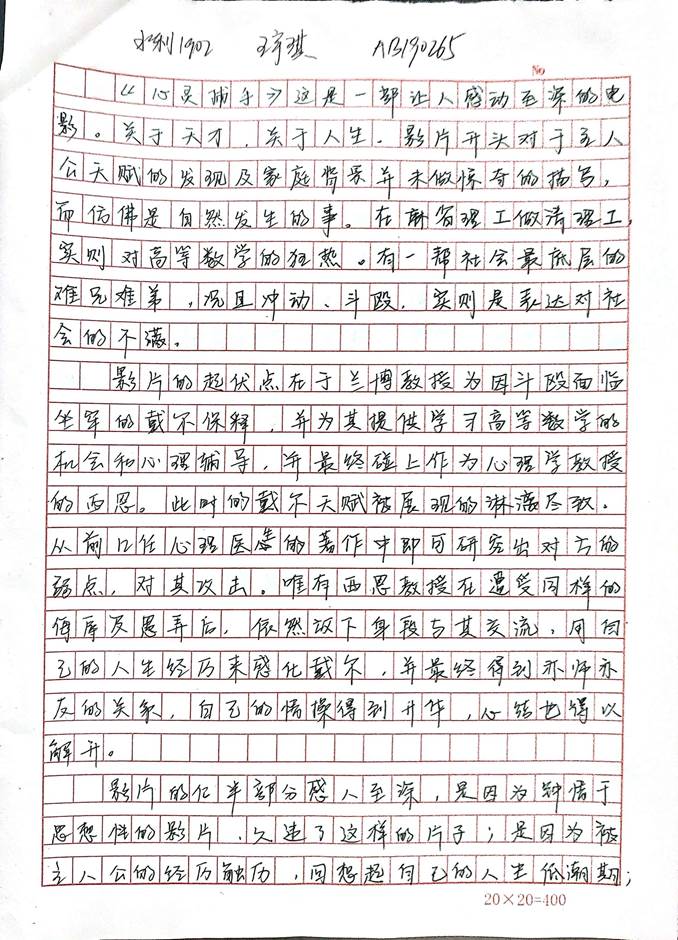 水利1902 王宇琪 AB190265
No
《心灵捕手》这是一部让人感动至深的电
影。关于天才，关于人生。影片开头对于主人
公天赋的发现及家庭背景并未做惊奇的描写，
而仿佛是自然发生的事。在麻省理工做清理工，
实则对高等数学的狂热。有一帮社会最底层的
难兄难弟，况且冲动、斗殴，实则是表达对社
会的不满。
影片的起伏点在于兰博教授为因斗殴面临
坐牢的戴尔保释，并为其提供学习高等数学的
机会和心理辅导，并最终碰上作为心理学教授
的西恩。此时的戴尔天赋被展现的淋漓尽致。
从前几任心理医生的著作中即可研究出对方的
弱点，对其攻击。唯有西恩教授在遭受同样的
侮辱及愚弄后，依然放下身段与其交流，用自
己的人生经历来感化戴尔，并最终得到亦师亦
友的关系，自己的情操得到升华，心结也得以
解开。
影片的后半部分感人至深，是因为钟情于
思想性的影片，久违了这样的片子；是因为被
主人公的经历触历，回想起自己的人生低潮期；
20×20=400